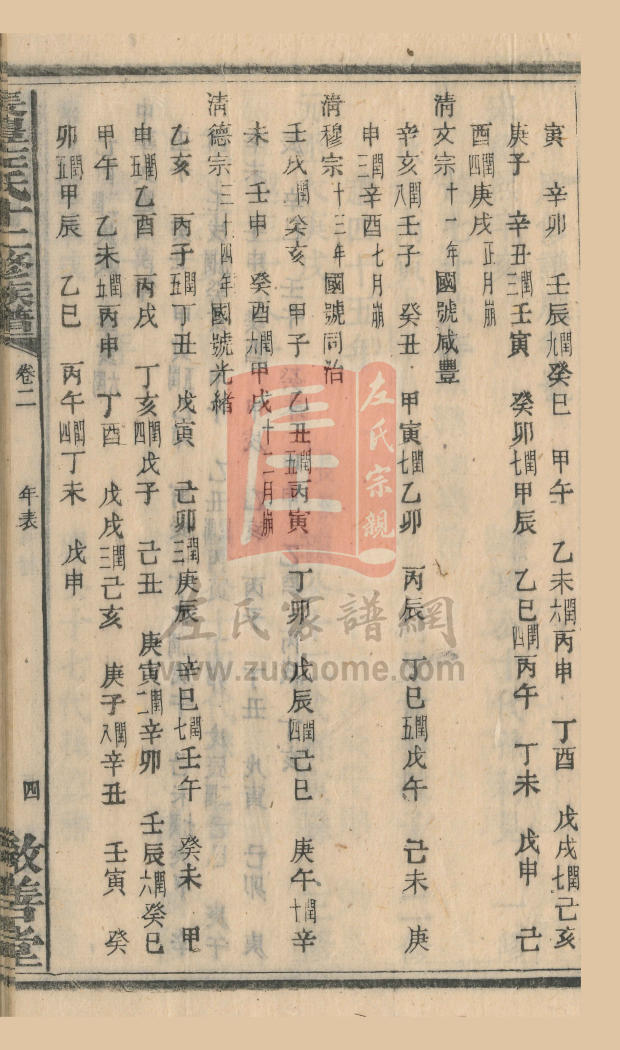 寅 辛卯 壬辰九閏癸巳 甲午 乙未六閏丙申 丁酉 戊戌七閏己亥
庚子 辛丑三閏壬寅 癸卯七閏甲辰 乙巳四閏丙午 丁未 戊申 己
酉四閏庚戌正月崩
清文宗十一年國號咸豐
辛亥八閏壬子 癸丑 甲寅七閏乙卯 丙辰 丁巳五閏戊午 己未 庚
申三閏辛酉七月崩
清穆宗十三年國號同治
壬戌八閏癸亥 甲子 乙丑五閏丙寅 丁卯 戊辰四閏己巳 庚午十閏辛
未 壬申 癸酉六閏甲戌十二月崩
清德宗三十四年國號光緒
乙亥 丙子五閏丁丑 戊寅 己卯三閏庚辰 辛巳七閏壬午 癸未 甲
申五閏乙酉 丙戌 丁亥四閏戊子 己丑 庚寅二閏辛卯 壬辰六閏癸巳
甲午 乙未五閏丙申 丁酉 戊戌三閏己亥 庚子八閏辛丑 壬寅 癸
卯五閏甲辰 乙巳 丙午四閏丁未 戊申
左氏十二修族譜
卷二
年表
四
敦善堂
左氏宗親
左氏家譜網
www.zuohome.com